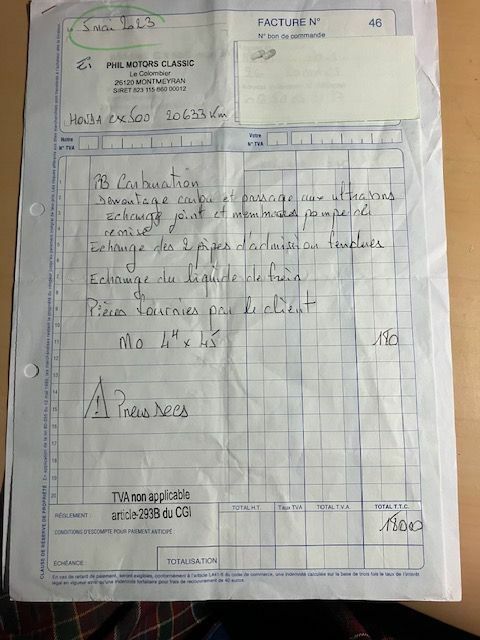 5 mai 2023
FACTURE N° 46
N° bon de commande
E.i PHIL MOTORS CLASSIC
Le Colombier
26120 MONTMEYRAN
SIRET 823 115 860 00012
HONDA CX 500 20633 Km
Notre N° TVA
Votre N° TVA
PB Carburation
Demontage carbu et passage aux ultrasons
Echange joint et membranes pompe de
reprise
Echange des 2 pipes d'admission fendues
Echange du liquide de frein
Pièces fournies par le client
MO 4H x 45 180
! Pneus secs
TVA non applicable
article-293B du CGI
RÉGLEMENT :
CONDITIONS D'ESCOMPTE POUR PAIEMENT ANTICIPÉ
TOTAL H.T. Taux TVA TOTAL T.V.A. TOTAL T.T.C.
18000
ÉCHÉANCE : TOTALISATION
En cas de retard de paiement, seront exigibles, conformément à l'article L441-6 du code de commerce, une indemnité calculée sur la base de trois fois le taux de l'intérêt
légal en vigueur ainsi qu'une indemnité forfaitaire pour frais de recouvrement de 40 euros.
CLAUSE DE RÉSERVE DE PROPRIÉTÉ